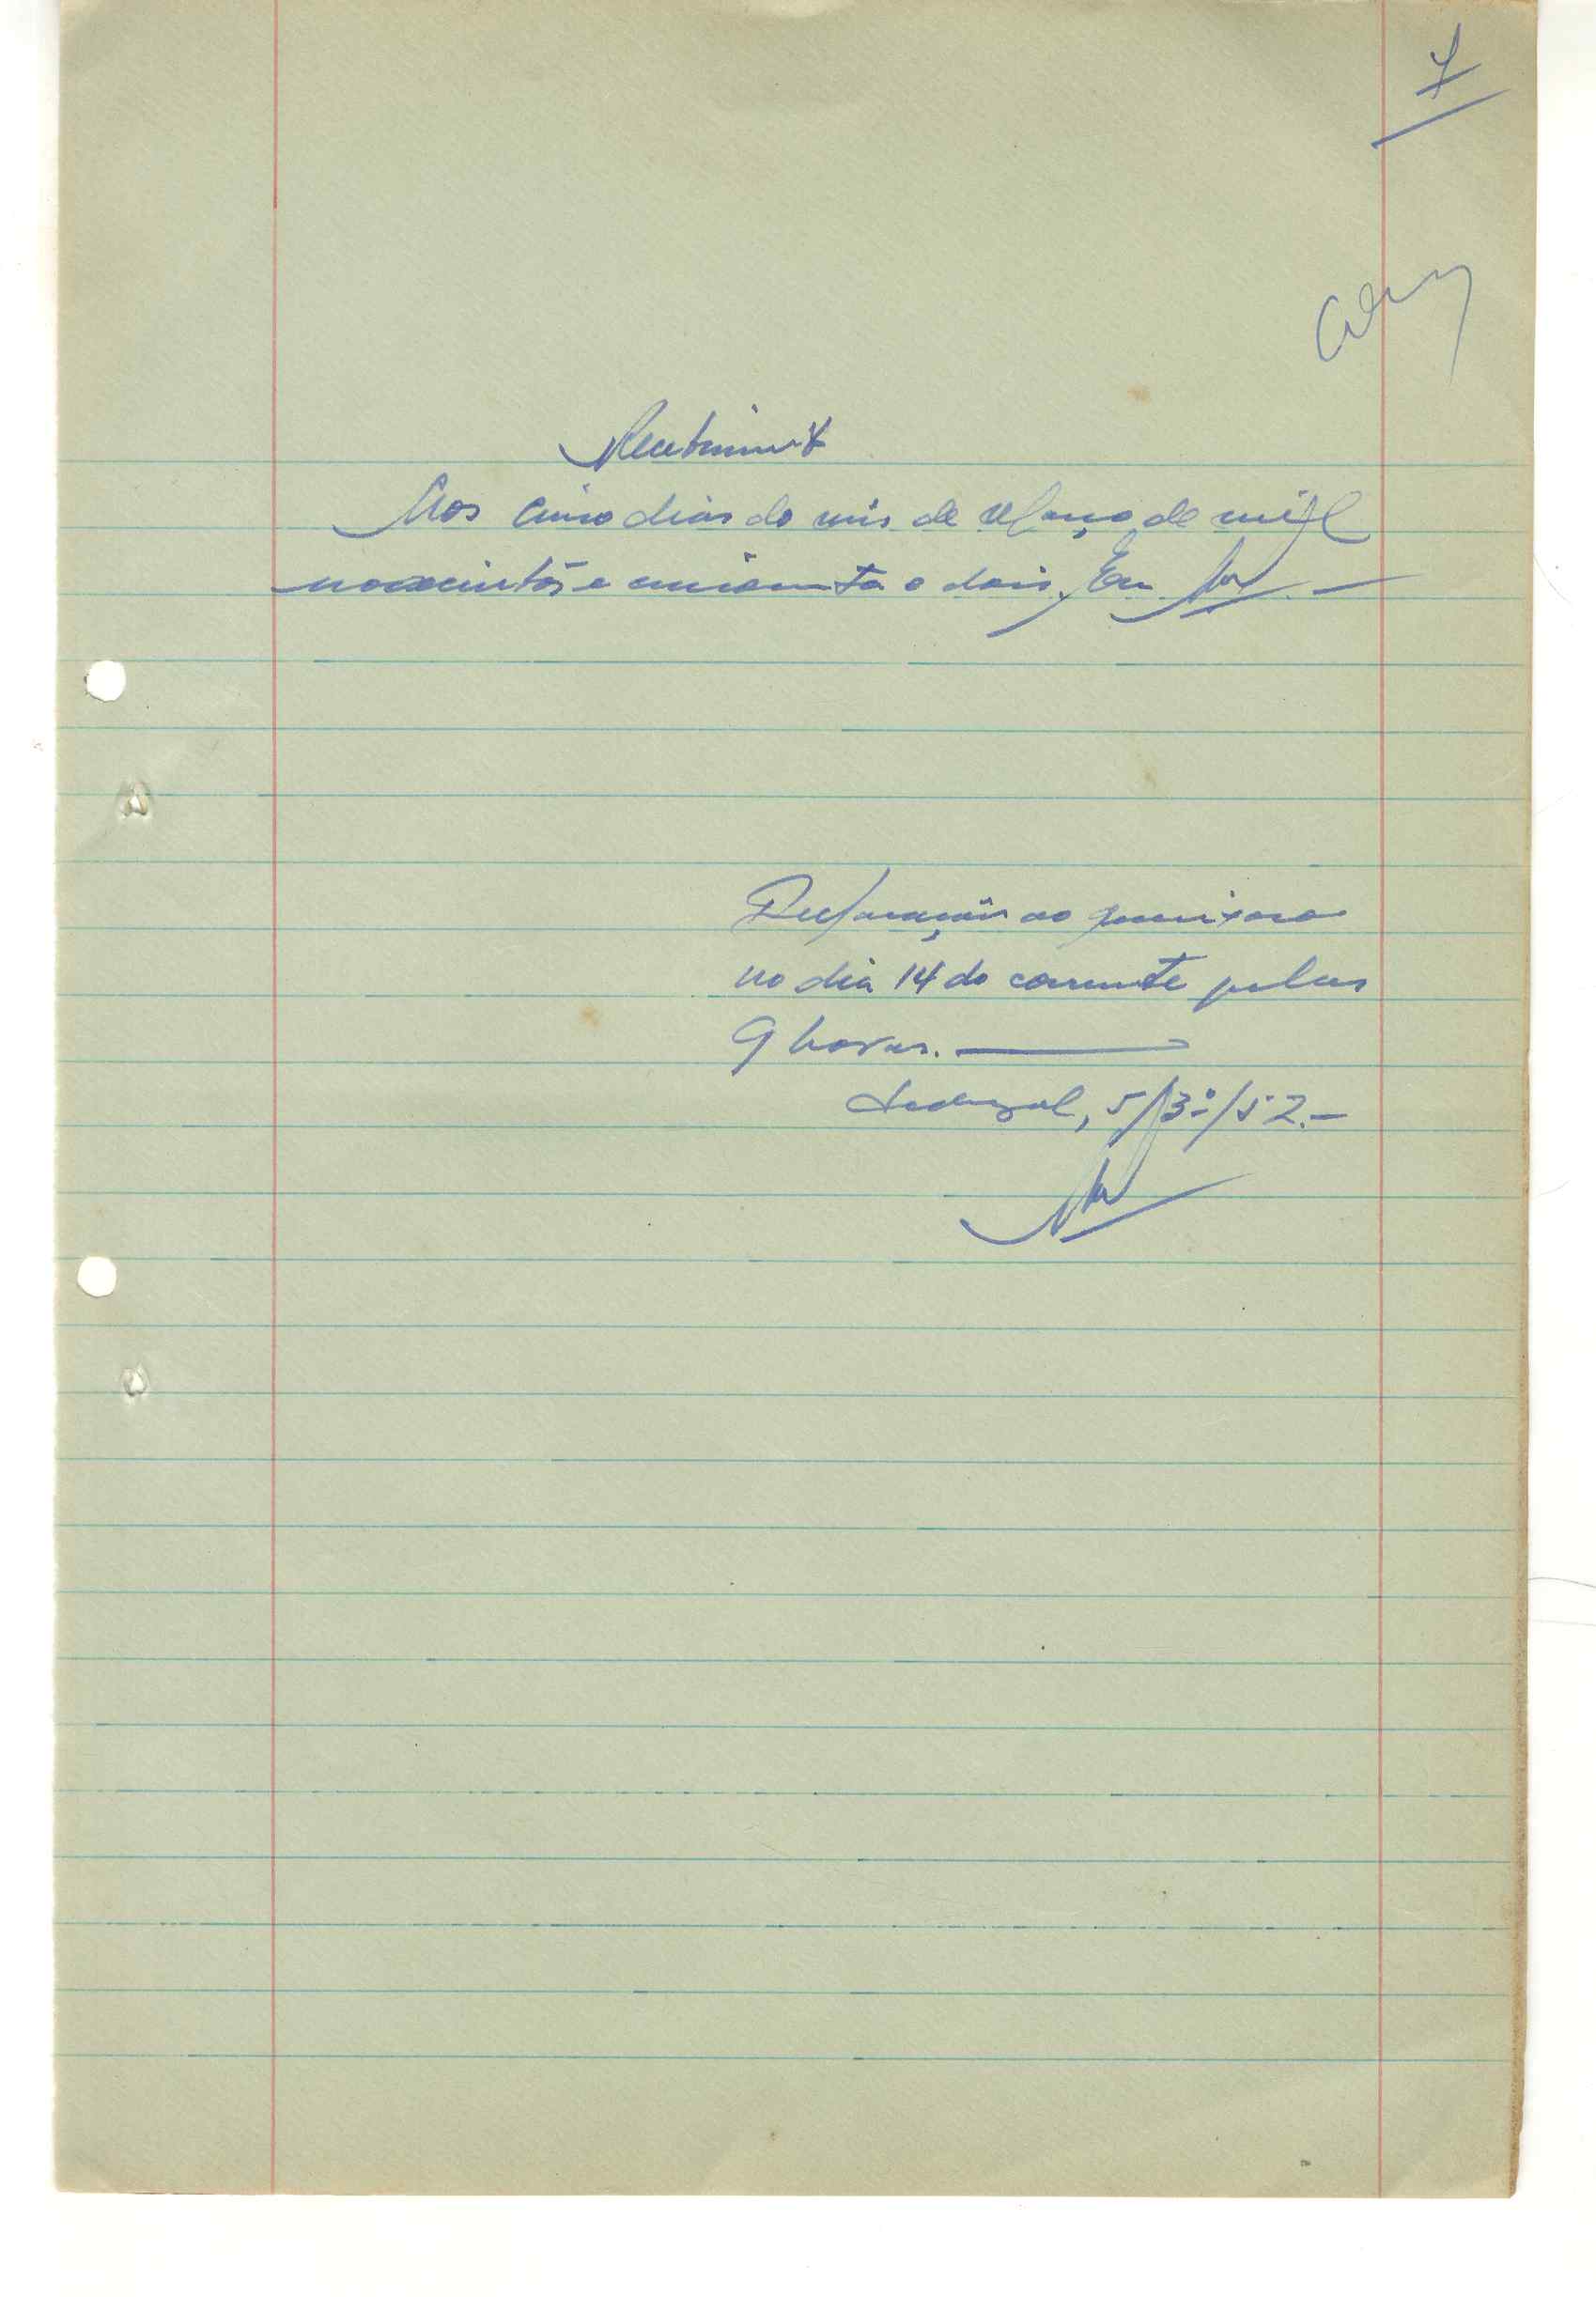 7
Recebimento
Aos cinco dias do mês de Março de mil
novecentos e cincoenta e dois. Eu
Declarações ao queixoso
no dia 14 do corrente pelas
9 horas.
5/3º/52.-